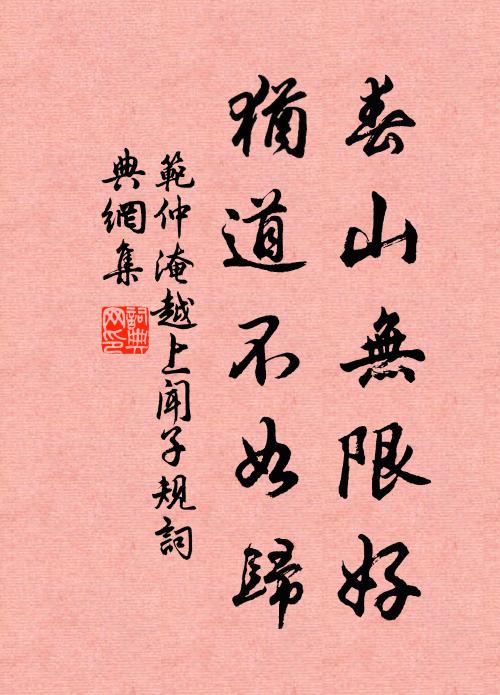 春山無限好
猶道不如歸
範仲淹越上聞子規詞
典網集
詞典
网印